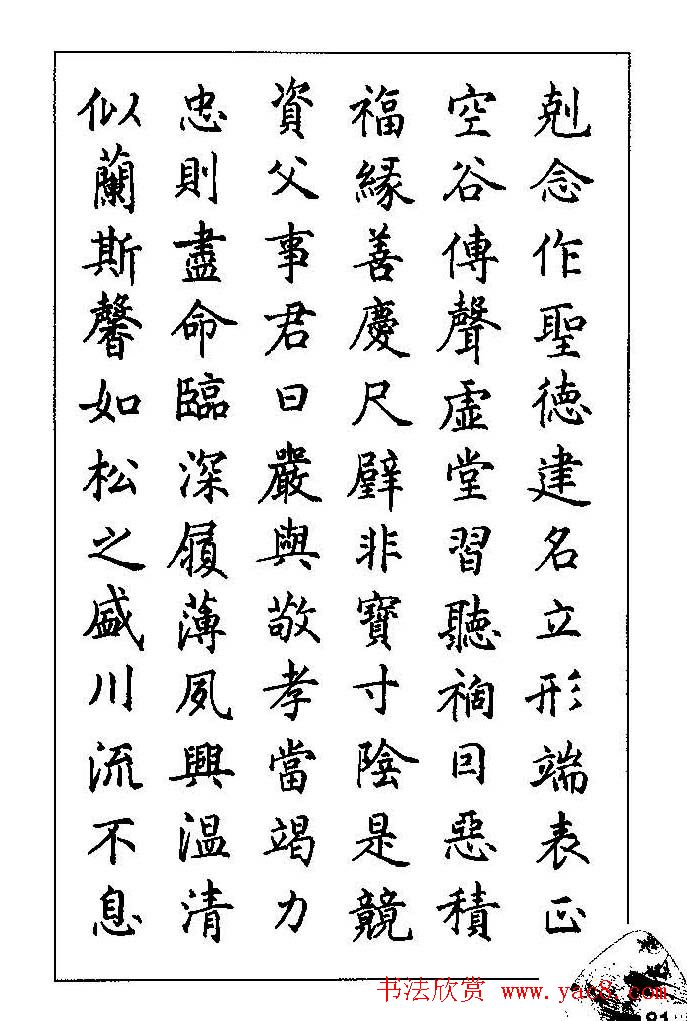 剋念作聖徳建名立形端表正
空谷傳聲虚堂習聽禍囙惡積
福緣善慶尺璧非寶寸陰是競
資父事君曰嚴與敬孝當竭力
忠則盡命臨深履薄夙興温清
似蘭斯馨如松之盛川流不息
书法欣赏 www.yac8.com